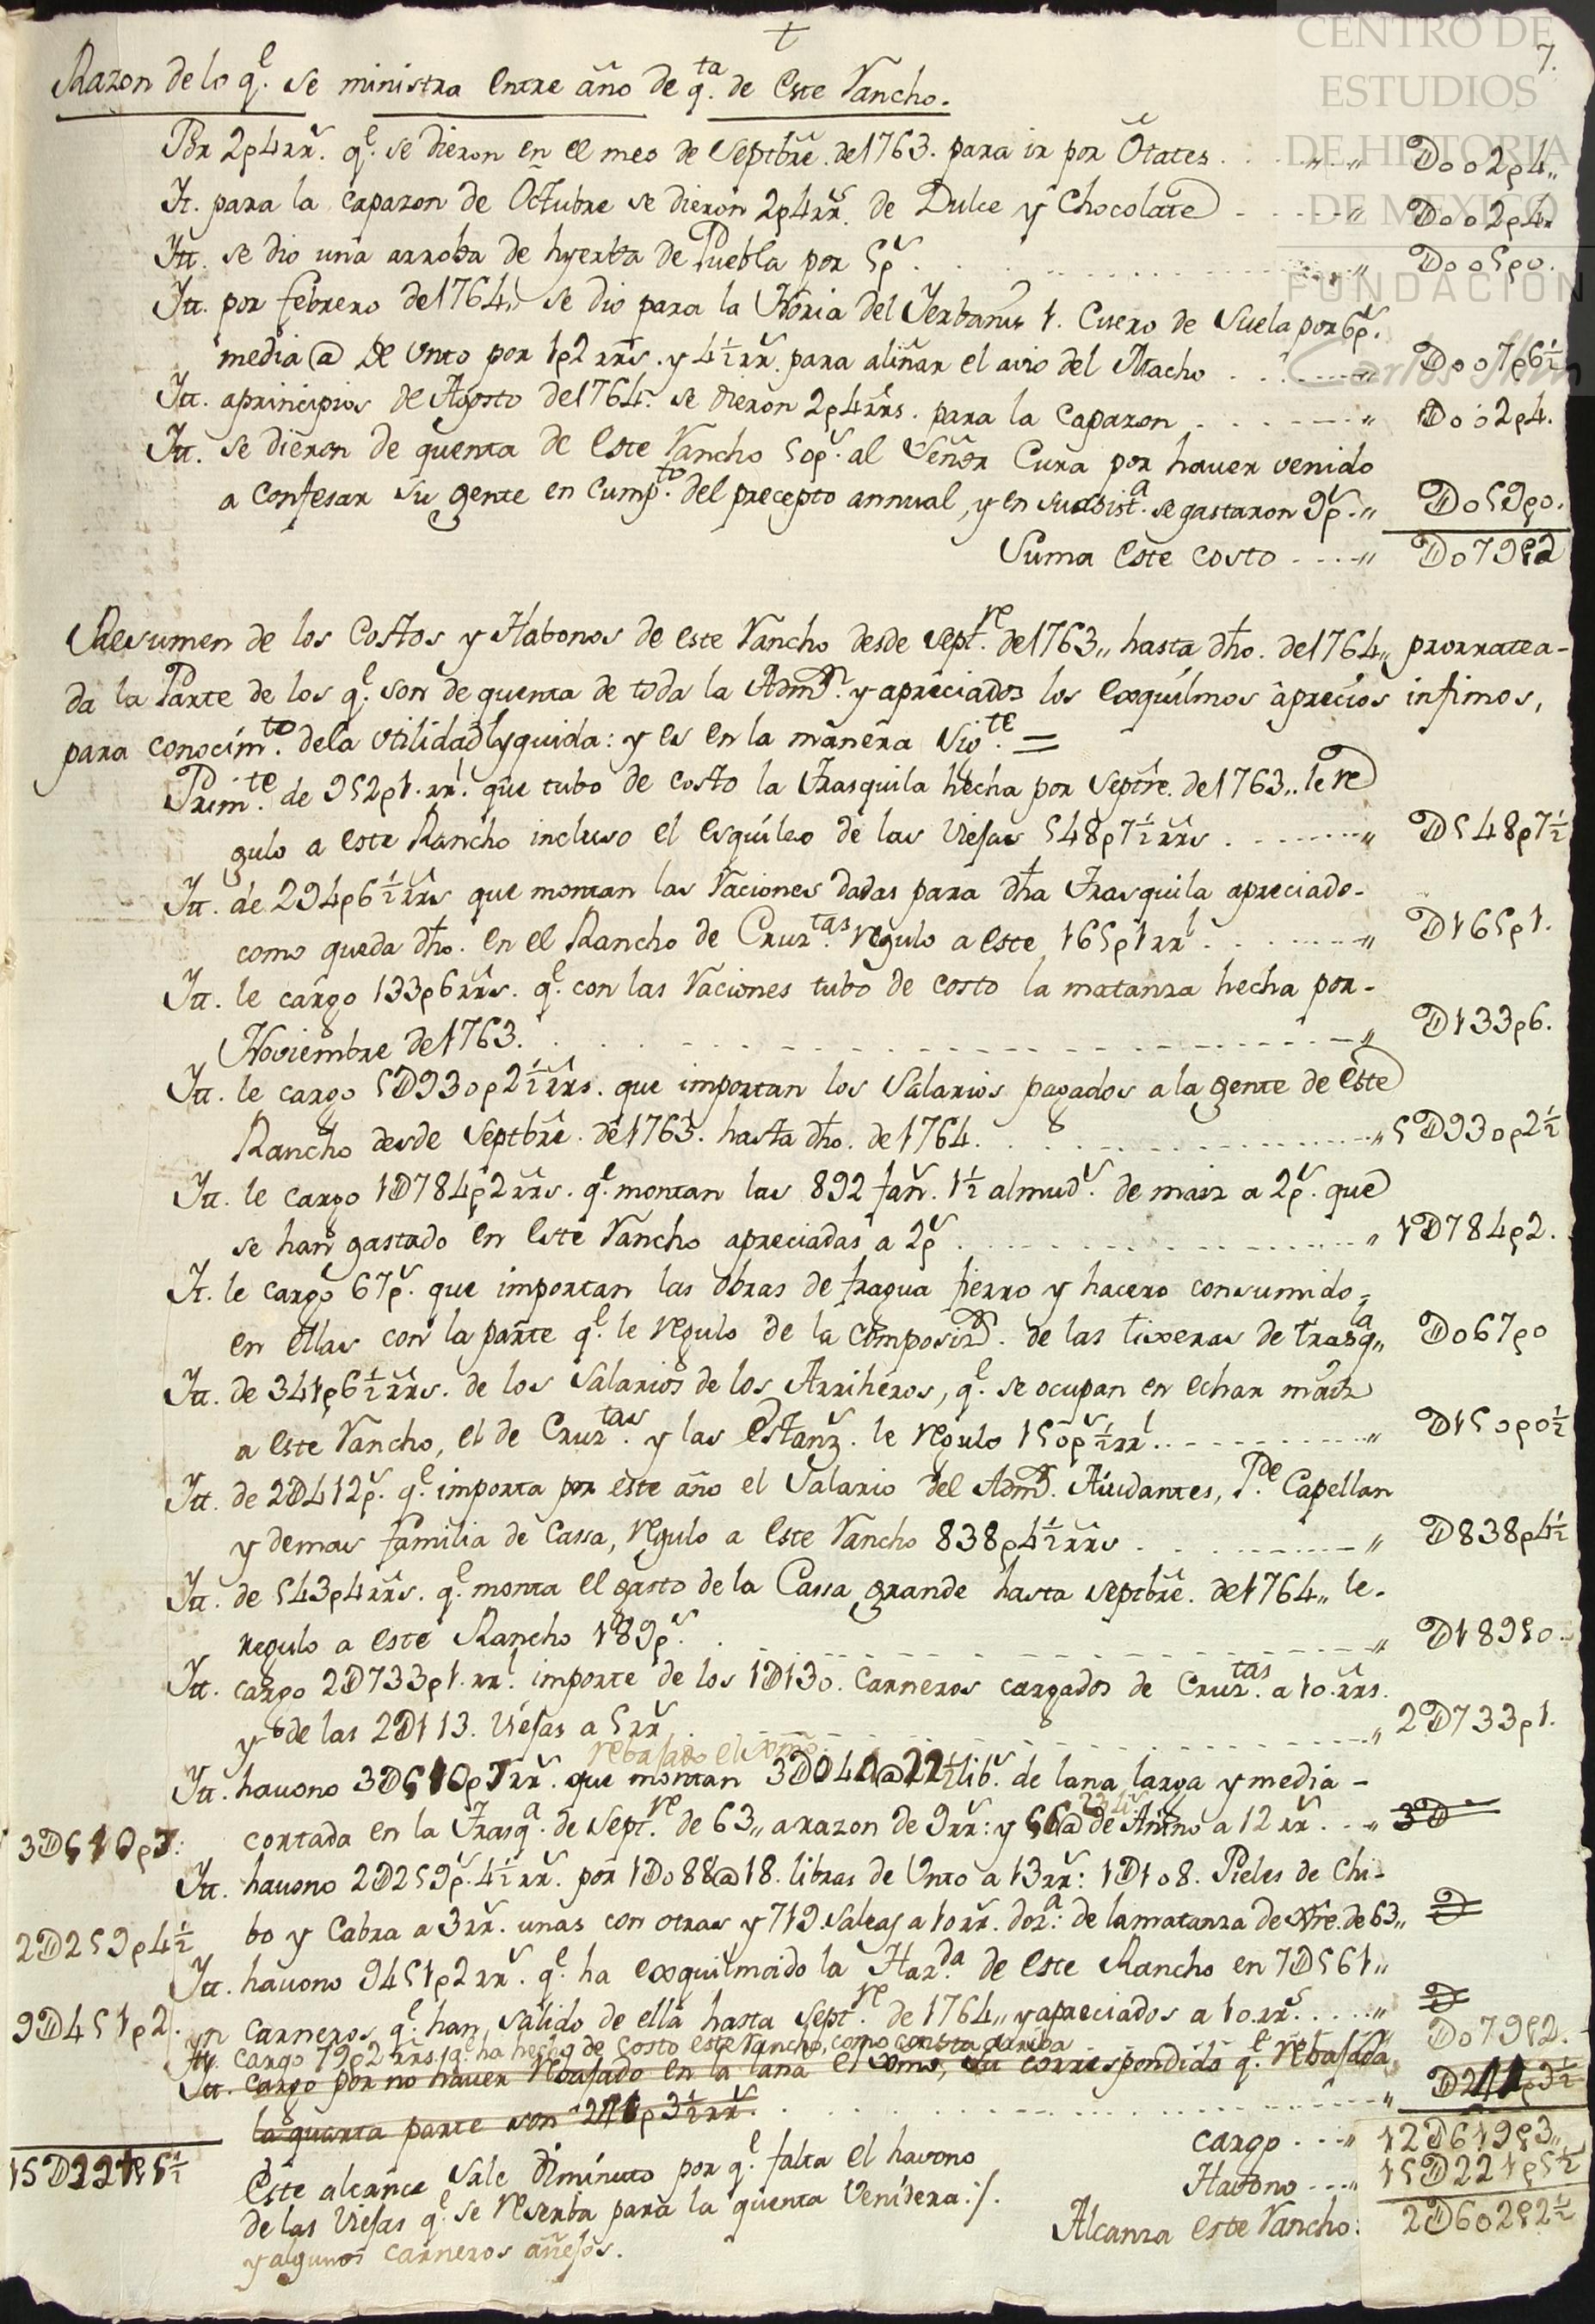 CENTRO DE
ESTUDIOS
DE HISTORIA
DE MEXICO
FUNDACION
Carlos Slim
7.
Razon de lo q.e se ministra entre año de q.ta de este Rancho.
Por 2p4rr.s q.e se dieron en el mes de Septbre. de 1763. para ir por Otates . . . Doo2p4,,
It. para la capazon de Octubre se dieron 2p4rr.s de Dulce y Chocolate - - - - Doo2p4.
Itt. se dio una arroba de hyerba de Puebla por 5p.s . . . . Doo5po.
Itt. por febrero de 1764,, se dio para la Noria del Jerbanis 1. Cuero de Suela por 6p.s
media @ de Unto por 1p2 rrs. y 4½rr.s para aliñar el avio del Macho . . . . Doo7p6½
Itt. aprincipios de Agosto de 1764. se dieron 2p4rrs. para la capazon . . . . Doo2p4.
Itt. se dieron de quenta de este Rancho 50p.s al Señor Cura por haver venido
a confesar su gente en cump.to del precepto annual, y en su asist.a se gastaron 9p.s ,, Do59po.
Suma este costo - - - ,, Do79p2
Resumen de los Costos y Habonos de este Rancho desde Sept.re de 1763,, hasta dho. de 1764,, prorratea-
da la Parte de los q.e son de quenta de toda la Adm.on y apreciados los esquilmos aprecios infimos,
para conocim.to dela Utilidad lyquida: y es en la manera Sig.te =
Prim.te de 952p1.rr.l que tubo de costo la Trasquila hecha por Septre. de 1763.. le re
gulo a este Rancho incluso el esquileo de las Viejas 548p7½rrs . . . . D548p7½
Itt. de 294p6½rrs que montan las Raciones dadas para dha Trasquila apreciado-
como queda dho. en el Rancho de Cruz.tas regulo a este 165p1rr.l . . . . D165p1.
Itt. le cargo 133p6rrs. q.e con las Raciones tubo de costo la matanza hecha por-
Noviembre de 1763. . . . . D133p6.
Itt. le cargo 5D930p2½rrs. que importan los Salarios pagados a la gente de este
Rancho desde Septbre. de 1763. hasta dho. de 1764. . . . . 5D930p2½
Itt. le cargo 1D784p2rrs. q.e montan las 892 fan.s 1½ almud.s de maiz a 2p.s que
se han gastado en este Rancho apreciadas a 2p.s . . . . 1D784p2.
It. le cargo 67p.s que importan las obras de fragua fierro y hacero consumido=
en ellas con la parte q.e le regulo de la composiz.on de las tixeras de trasq.la,, Do67po
Itt. de 341p6½rrs. de los Salarios de los Arriheros, q.e se ocupan en echar maiz
a este Rancho, el de Cruz.tas y las Estanz.s le regulo 150p.s½rr.l . . . . D150p0½
Itt. de 2D412p.s q.e importa por este año el Salario del Adm.or Aiudantes, P.de Capellan
y demas familia de Cassa, regulo a este Rancho 838p4½rrs . . . . D838p4½
Itt. de 543p4rrs. q.e monta el gasto de la Cassa grande hasta Septbre. de 1764,, le-
regulo a este Rancho 189p.s . . . . D189po.
Itt. cargo 2D733p1.rr.l importe de los 1D130. Carneros cargados de Cruz.tas a 10.rrs.
y de las 2D113. Viejas a 5rr.s . . . . 2D733p1.
rebajado el
Itt. havono 3D510p7rr.s que montan 3D04 @22½lib.s de lana larga y media -
3D510p7. cortada en la Trasq.a de Sept.re de 63,, a razon de 9rr.s: y @ de Anino a 12 rr.s . . 3D
Itt. havono 2D259p.s4½rr.s por 1Do88@18. libras de Unto a 13rr.s: 1D108. Pieles de Chi-
2D259p4½ bo y Cabra a 3rr.s unas con otras y 719.Saleas a 10rr.s doz.a: de la matanza de Nre. de 63,, D
Itt. havono 9451p2rr.s q.e ha esquilmado la Haz.da de este Rancho en 7D561,,
9D451p2. Carneros q.e han salido de ella hasta Sept.re de 1764,, y apreciados a 10.rr.s . . . . D
Itt. cargo 79p2rrs. q.e ha hecho de costo este Rancho, como consta arriba Do79p2.
Itt. cargo por no haver rebajado en la lana el correspondido q.e rebajada
la quarta parte son p3½rr.s . . . . D p3½
cargo . . . 12D619p3,,
15D221p5½ Este alcance sale diminuto por q.e falta el havono Havono . . . 15D221p5½
de las Viejas q.e se reserba para la quenta Venidera./. Alcanza este Rancho: 2D602p2½
y algunos carneros añejos.